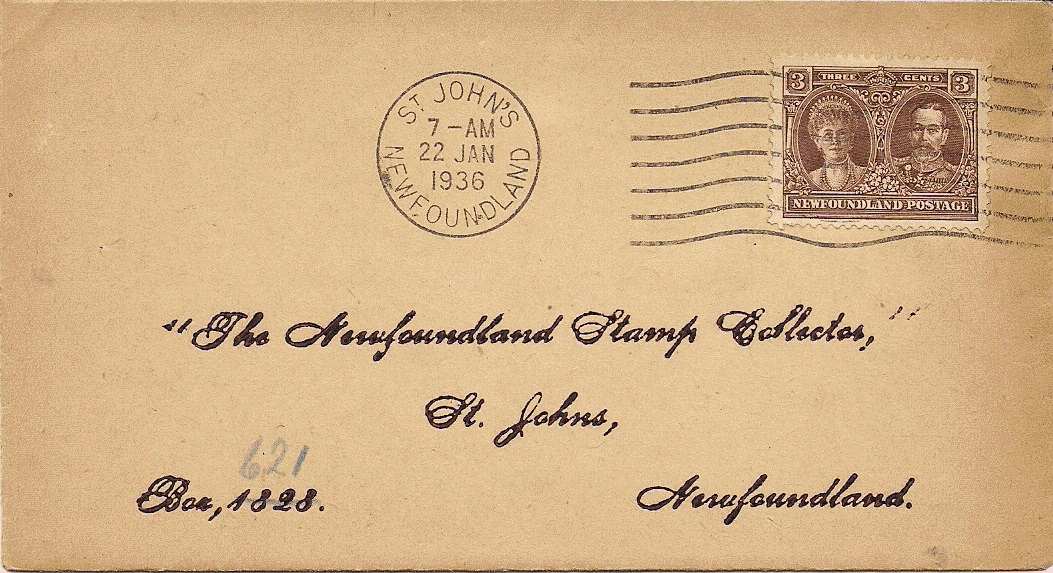 ST JOHN'S
7-AM
22 JAN
1936
NEWFOUNDLAND
3 THREE CENTS 3
NEWFOUNDLAND POSTAGE
"The Newfoundland Stamp Collector,"
St. Johns,
621
Box, 1828. Newfoundland.